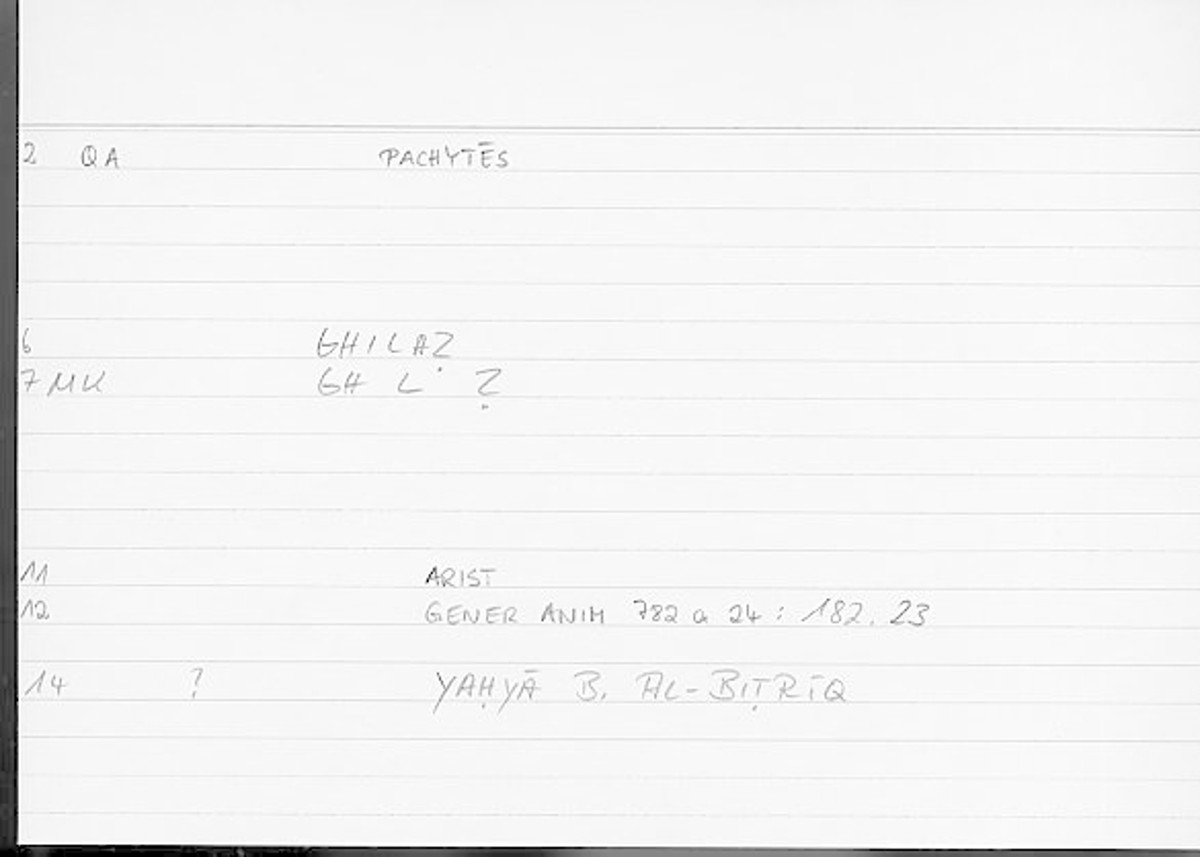 2 QA PACHYTĒS
6 GHILAẒ
7 MK GH L Ẓ
11 ARIST
12 GENER ANIM 782 a 24 : 182, 23
14 ? YAḤYĀ B. AL-BIṬRĪQ